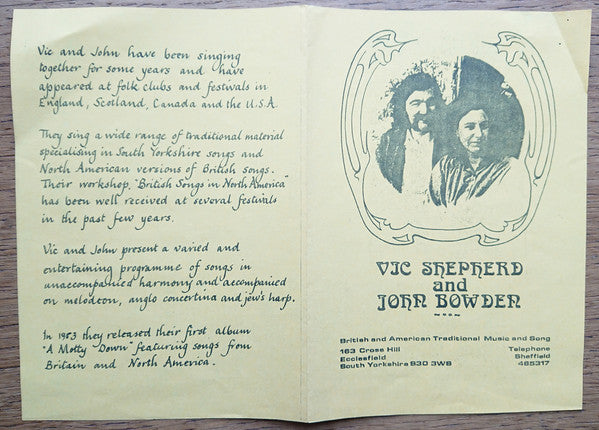 Vic and John have been singing
together for some years and have
appeared at folk clubs and festivals in
England, Scotland, Canada and the U.S.A.
They sing a wide range of traditional material
specialising in South Yorkshire songs and
North American versions of British songs.
Their workshop, "British Songs in North America"
has been well received at several festivals
in the past few years.
Vic and John present a varied and
entertaining programme of songs in
unaccompanied harmony and accompanied
on melodeon, anglo concertina and jew's harp.
In 1983 they released their first album
"A Motty Down" featuring songs from
Britain and North America.
VIC SHEPHERD
and
JOHN BOWDEN
British and American Traditional Music and Song
163 Cross Hill
Ecclesfield
South Yorkshire S30 3WS
Telephone
Sheffield
485317